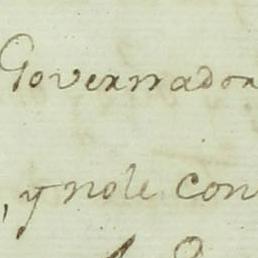 Governador
, y nole con